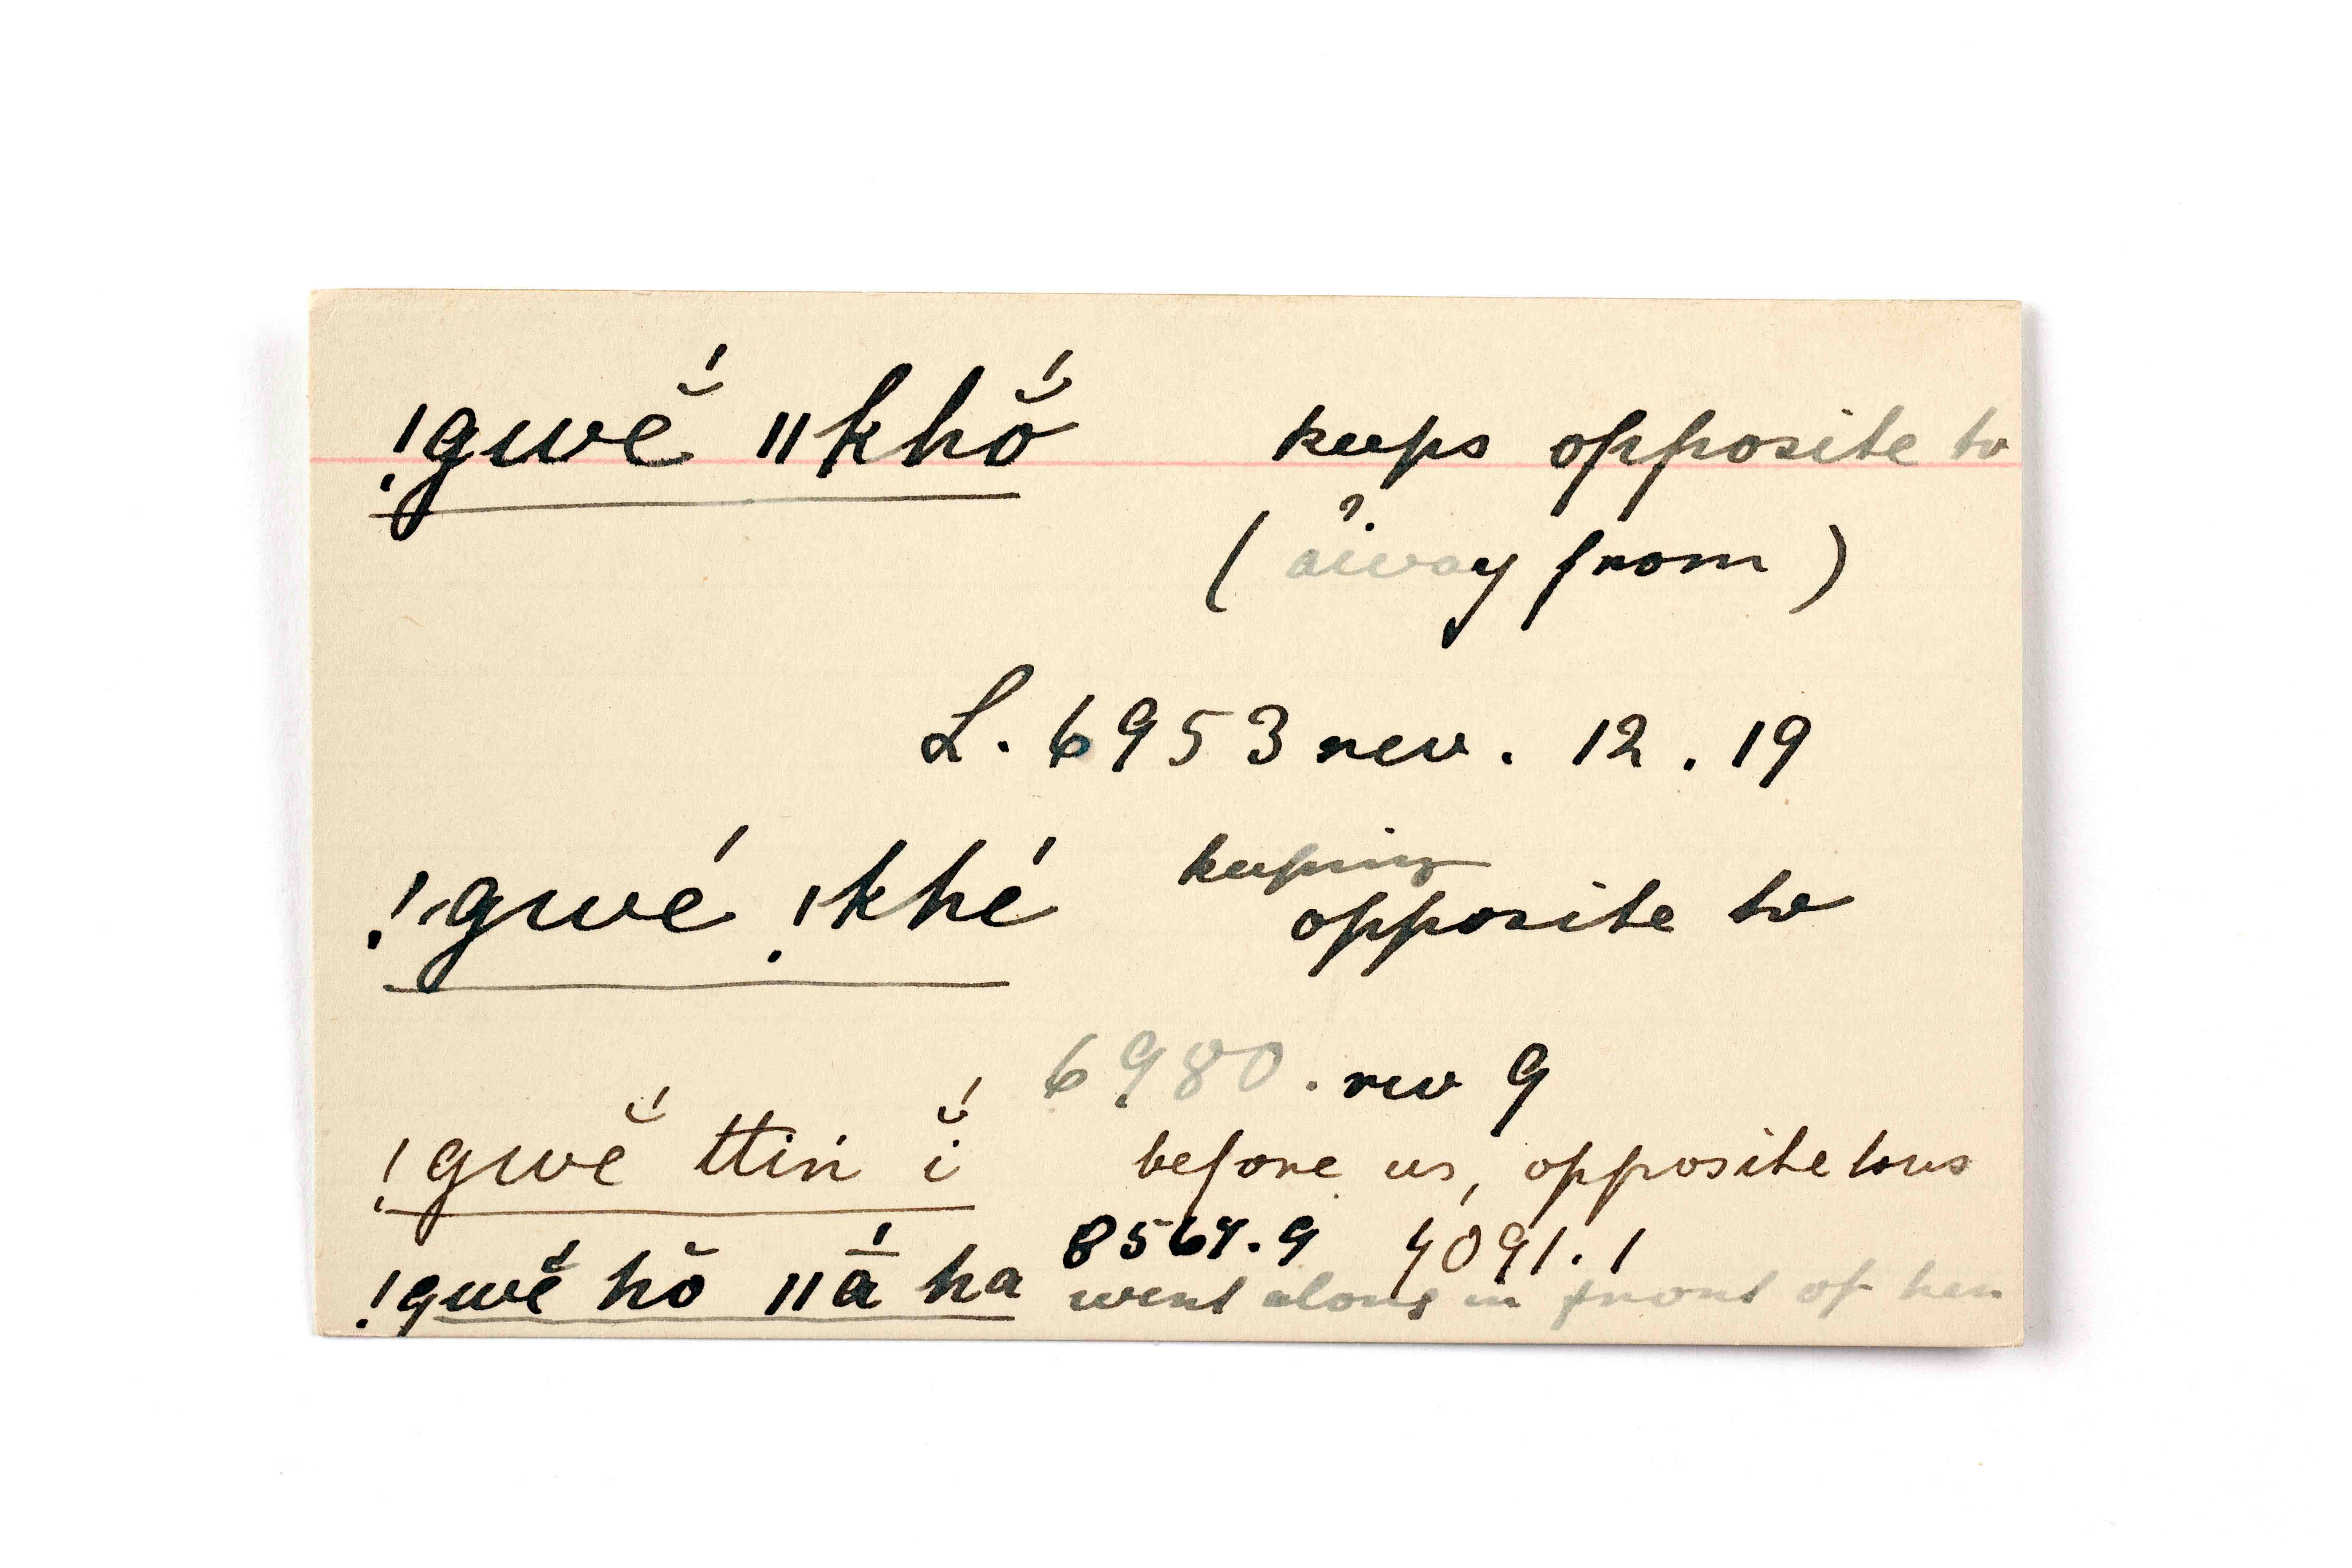 !gwĕ́ ǁkhŏ́ keeps opposite to
(? away from)
L. 6953 rev. 12.19
!gwé !khé keeping opposite to
6980. rev 9
!gwĕ́ ttiń ĭ́ before us, opposite to us
4091.1
!gwĕ́ hŏ ǁā́ ha went along in front of her